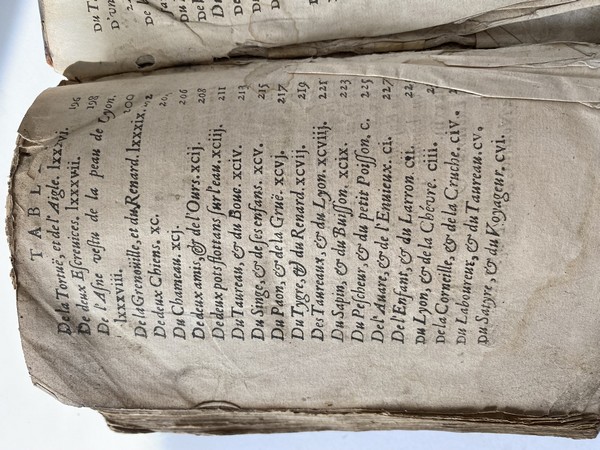 TABL
De la Tortuë, et de l'Aigle. lxxxvi. 196
De deux Escreuices. lxxxvii. 198
De l'Asne vestu de la peau de Lyon.
lxxxviii. 200
De la Grenoüille, et du Renard. lxxxix. 202
De deux Chiens. xc. 205
Du Chameau. xcj. 206
De deux amis, & de l'Ours. xcij. 208
De deux pots flottans sur l'eau. xciij. 211
Du Taureau, & du Bouc. xciv. 213
Du Singe, & de ses enfans. xcv. 215
Du Paon, & de la Gruë. xcvj. 217
Du Tygre, & du Renard. xcvij. 219
Des Taureaux, & du Lyon. xcviij. 221
Du Sapin, & du Buisson. xcix. 223
Du Pescheur, & du petit Poisson. c. 225
De l'Auare, & de l'Enuieux. ci. 227
De l'Enfant, & du Larron. cii. 22
Du Lyon, & de la Chévre. ciii. 2
De la Corneille, & de la Cruche. civ.
Du Laboureur, & du Taureau. cv.
Du Satyre, & du Voyageur. cvi.